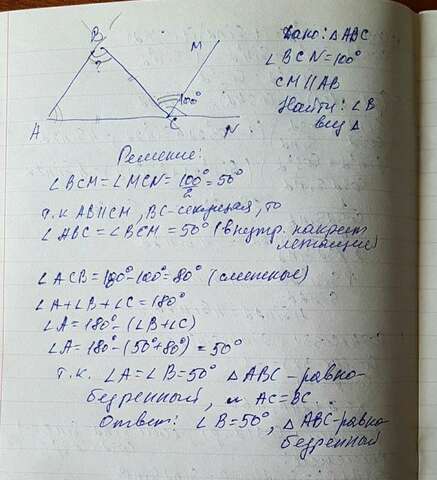 B
?
M
100°
A
C
N
Дано: △ ABC
∠ BCN = 100°
CM || AB
Найти: ∠ B
вид △
Решение:
∠ BCM = ∠ MCN = 100°/2 = 50°
т.к AB||CM, BC-секущая, то
∠ ABC = ∠ BCM = 50° (внутр. накрест
лежащие)
∠ ACB = 180° - 100° = 80° (смежные)
∠A + ∠B + ∠C = 180°
∠A = 180° - (∠B + ∠C)
∠A = 180° - (50° + 80°) = 50°
т.к. ∠A = ∠B = 50° △ ABC - равно-
бедренный, и AC = BC.
Ответ: ∠ B = 50°, △ ABC - равно-
бедренный